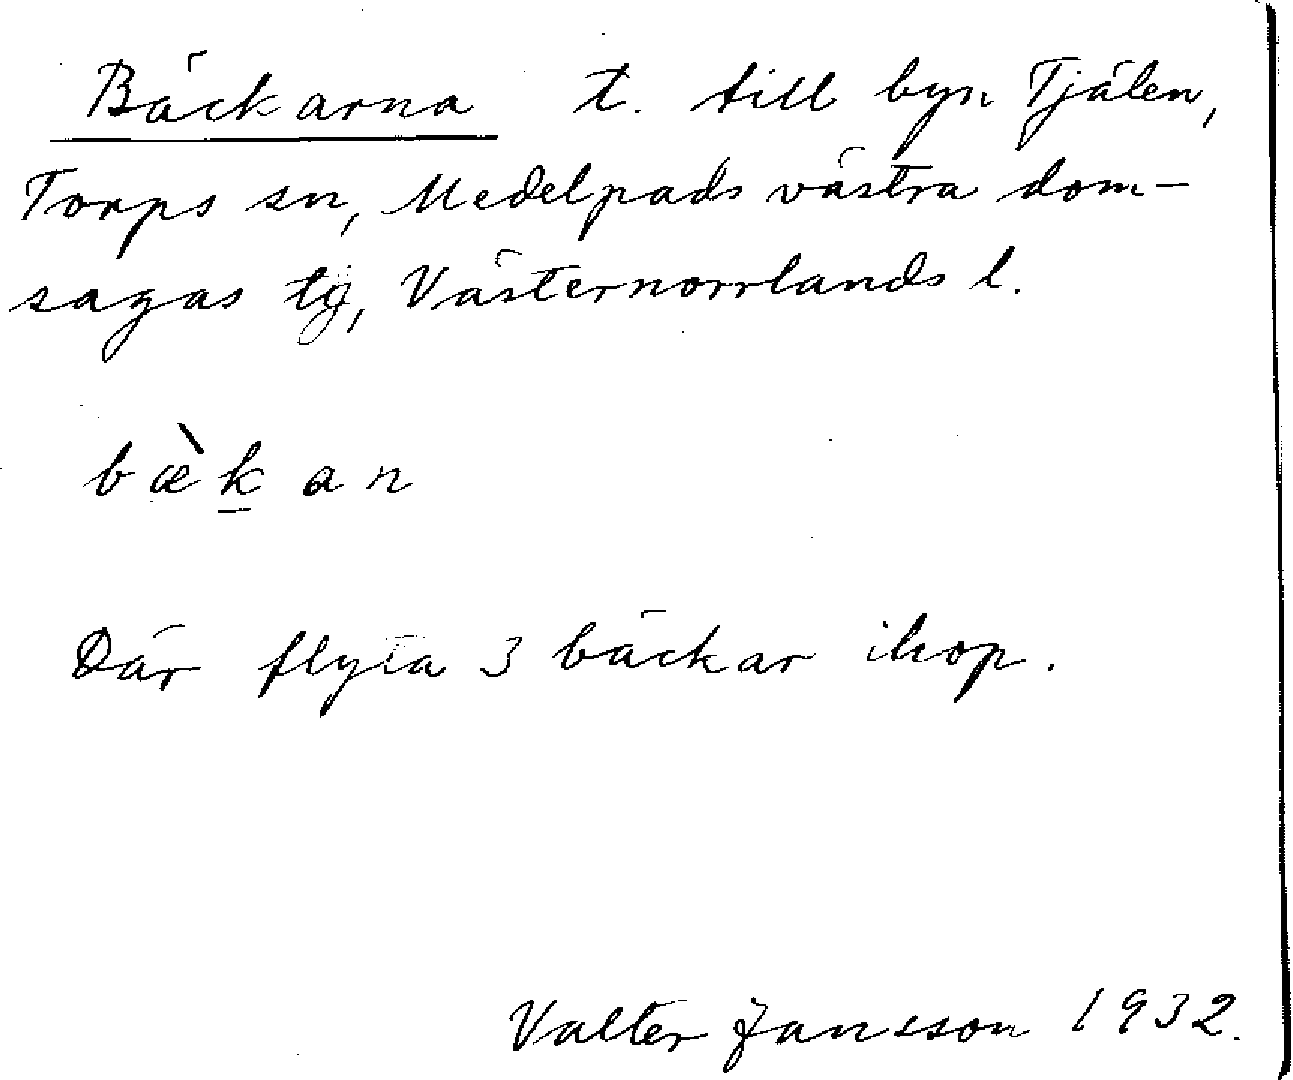 Bäckarna t. till byn Tjälen,
Torps sn, Medelpads västra dom-
sagas tg, Västernorrlands l.
bæ̀k̲an
Där flyta 3 bäckar ihop.
Valter Jansson 1932.